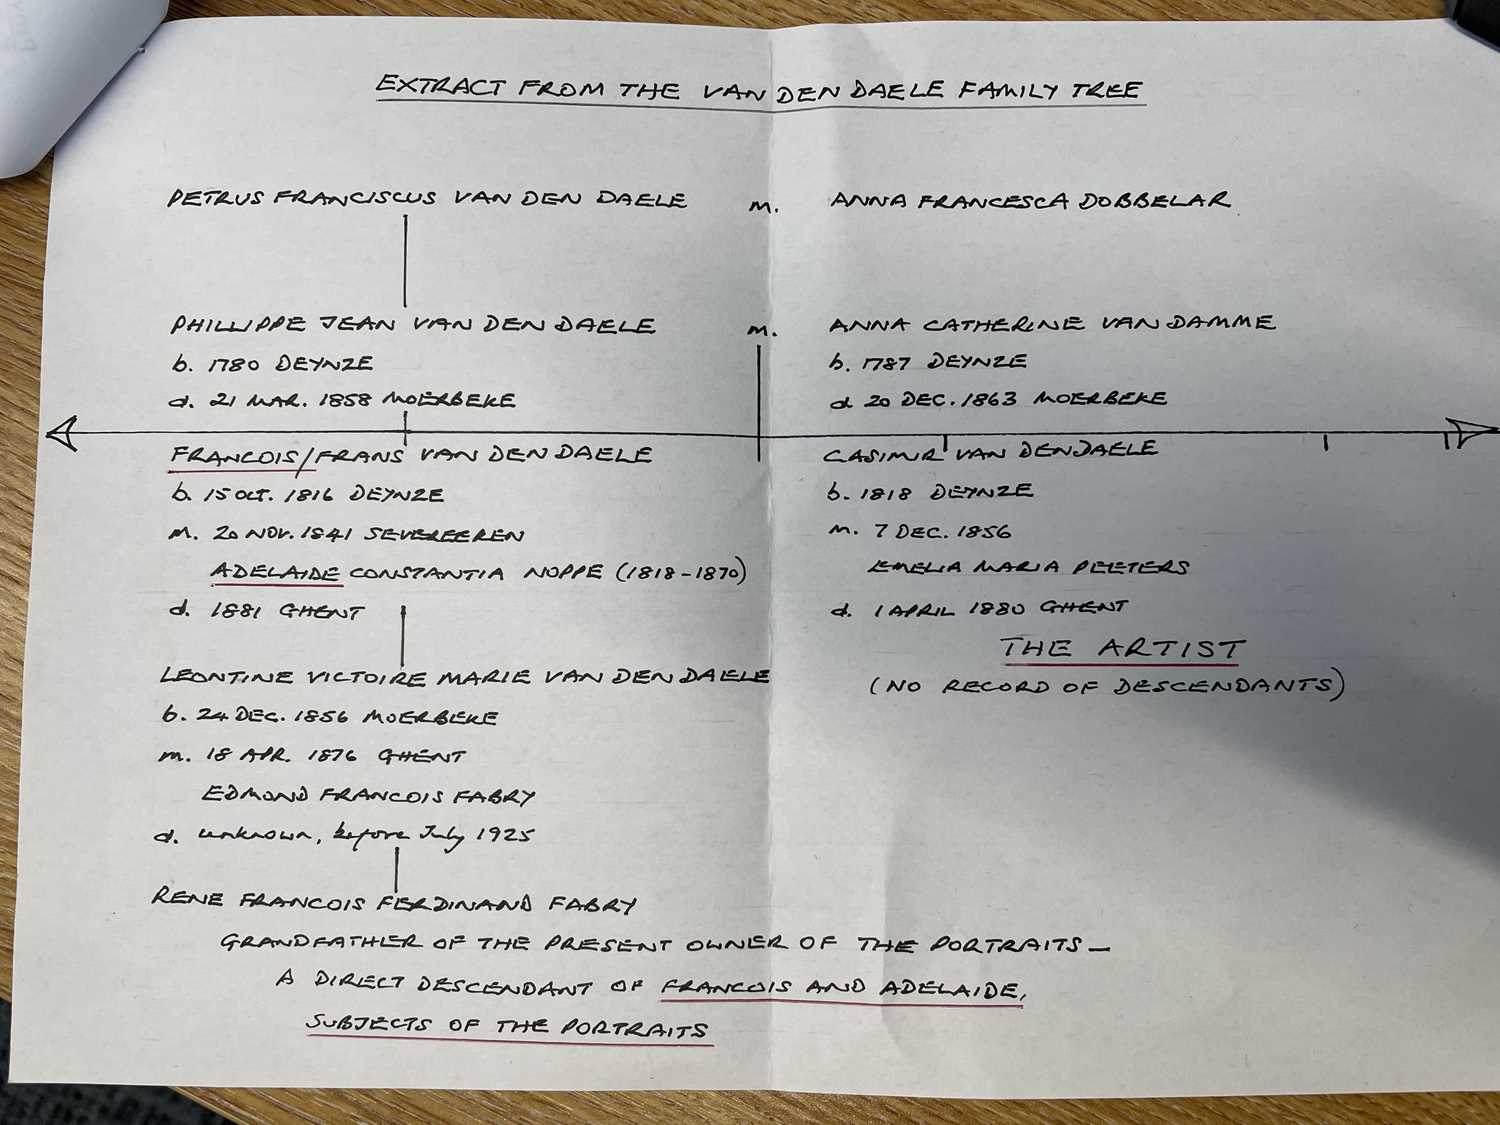 EXTRACT FROM THE VAN DEN DAELE FAMILY TREE
PETRUS FRANCISCUS VAN DEN DAELE m. ANNA FRANCESCA DOBBELAR
PHILLIPPE JEAN VAN DEN DAELE m. ANNA CATHERINE VAN DAMME
b. 1780 DEYNZE
d. 21 MAR. 1858 MOERBEKE
b. 1787 DEYNZE
d 20 DEC. 1863 MOERBEKE
FRANCOIS/FRANS VAN DEN DAELE
b. 15 OCT. 1816 DEYNZE
m. 20 NOV. 1841 SEVEREEREN
ADELAIDE CONSTANTIA NOPPE (1818-1870)
d. 1881 GHENT
CASIMIR VAN DEN DAELE
b. 1818 DEYNZE
m. 7 DEC. 1856
EMELIA MARIA PEETERS
d. 1 APRIL 1880 GHENT
THE ARTIST
(NO RECORD OF DESCENDANTS)
LEONTINE VICTOIRE MARIE VAN DEN DAELE
b. 24 DEC. 1856 MOERBEKE
m. 18 APR. 1876 GHENT
EDMOND FRANCOIS FABRY
d. unknown, before July 1925
RENE FRANCOIS FERDINAND FABRY
GRANDFATHER OF THE PRESENT OWNER OF THE PORTRAITS —
A DIRECT DESCENDANT OF FRANCOIS AND ADELAIDE,
SUBJECTS OF THE PORTRAITS